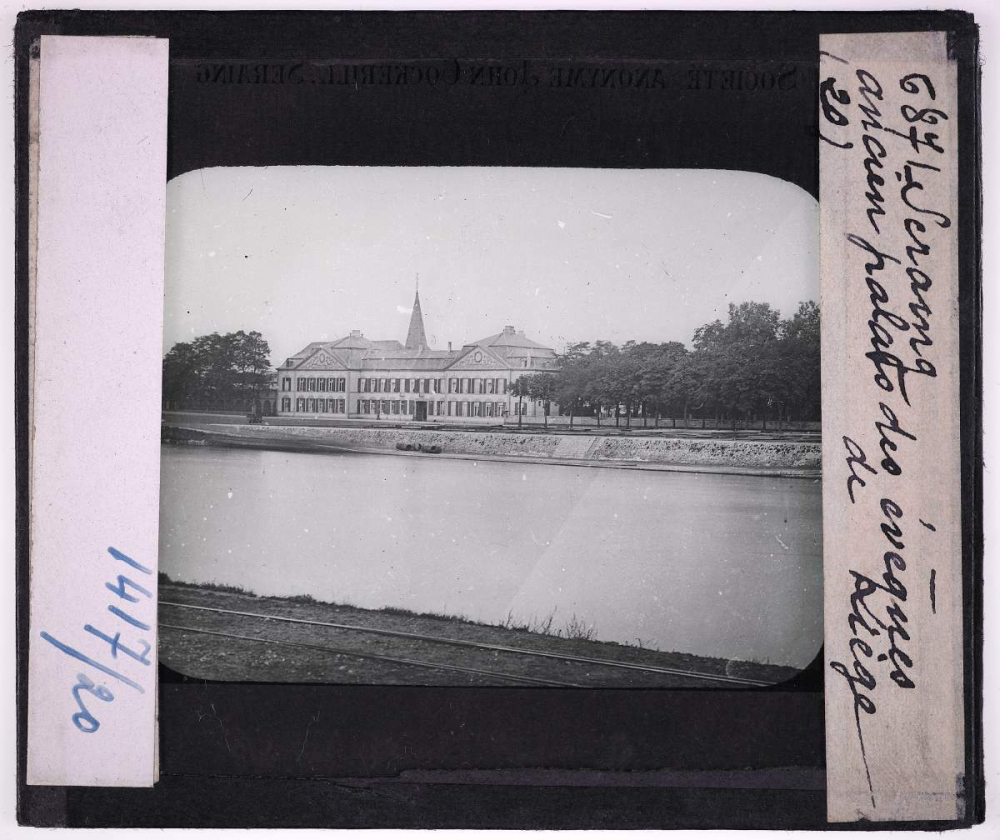 SOCIÉTÉ ANONYME JOHN COCKERILL, SERAING
687/ Seraing
ancien palais des évêques
de Liège
(20)
1417/20